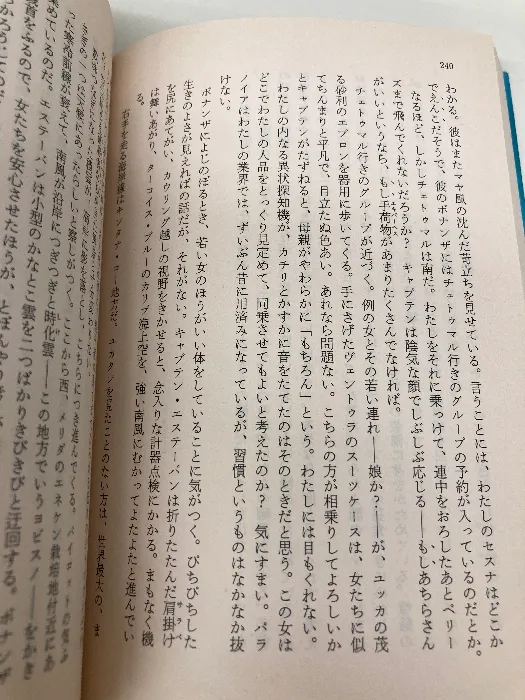 240
わかる。彼はまたマヤ風の沈んだ苛立ちを見せている。言うことには、わたしのセスナはどこか
でえんこだそうで、彼のボナンザにはチェトゥマル行きのグループの予約が入っているのだとか。
なるほど、しかしチェトゥマルは南だ。わたしをそれに乗っけて、連中をおろしたあとベリー
ズまで飛んでくれないだろうか？　キャプテンは陰気な顔でしぶしぶ応じる――もしあちらさん
がいいというなら、もし手荷物があまりたくさんでなければ。
チェトゥマル行きのグループが近づく。例の女とその若い連れ――娘か？――が、ユッカの茂
る砂利のエプロンを器用に歩いてくる。手にさげたヴェントゥラのスーツケースは、女たちに似
てちんまりと平凡で、目立たぬ色あい。あれなら問題ない。こちらの方が相乗りしてよろしいか
とキャプテンがたずねると、母親がやわらかに「もちろん」という。わたしには目もくれない。
わたしの内なる異状探知機が、カチリとかすかに音をたてたのはそのときだと思う。この女は
どこでわたしの人品をとっくり見定めて、同乗させてもよいと考えたのか？　気にすまい。パラ
ノイアはわたしの業界では、ずいぶん昔に用済みになっているが、習慣というものはなかなか抜
けない。
ボナンザによじのぼるとき、若い女のほうがいい体をしていることに気がつく。ぴちぴちした
生きのよさが見えれば の話だが、それがない。キャプテン・エステーバンは折りたたんだ肩掛け
サラペ
を尻にあてがい、カウリング越しの視野をきかせると、念入りな計器点検にかかる。まもなく機
は舞いあがり、ターコイス・ブルーのカリブ海上空を、強い南風にむかってよたよたと進んでい
る。
右手を走る海岸線はキンタナ・ロー
ユカタンを見たことのない方は、世界最大の、ま
こちらにつき進んでくる。
ここから西、メリダのエネケン栽培地付近にあ
った寒冷前線が
南風が沿岸につぎつぎと時化雲――この地方でいうヨビスノ――をかき
集めているのだ。エステーバンは小型のかなとこ雲を二つばかりきびきびと迂回する。ボナンザ
女たちを安心させたほうが、と